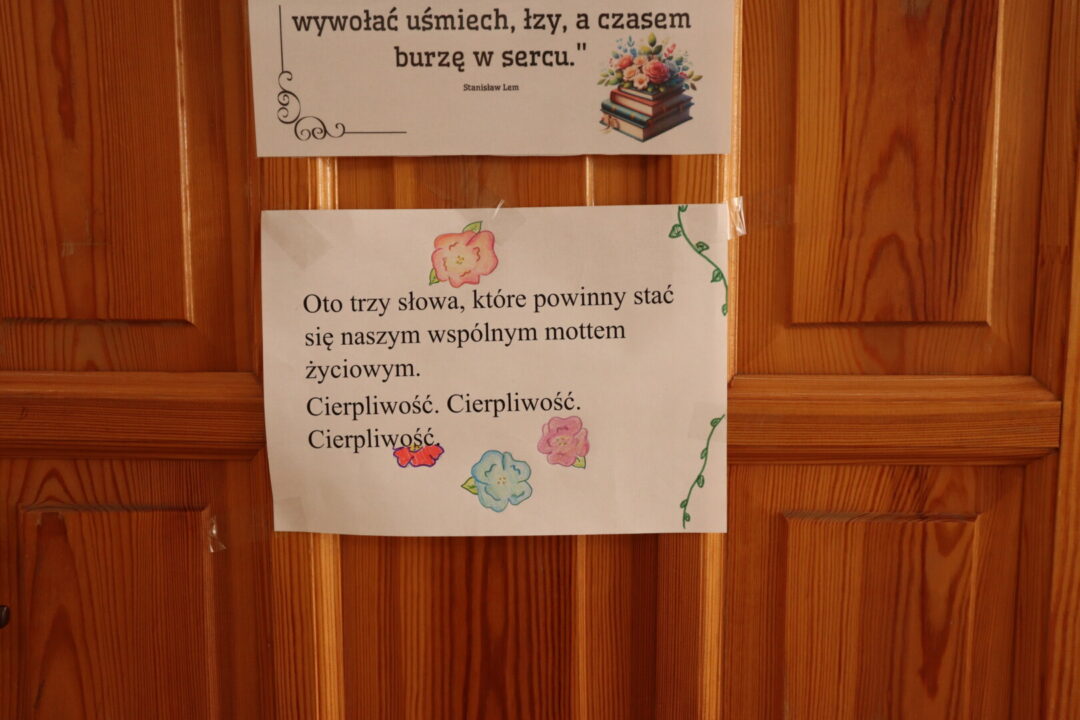 wywołać uśmiech, łzy, a czasem
burzę w sercu."
Stanisław Lem
Oto trzy słowa, które powinny stać
się naszym wspólnym mottem
życiowym.
Cierpliwość. Cierpliwość.
Cierpliwość.